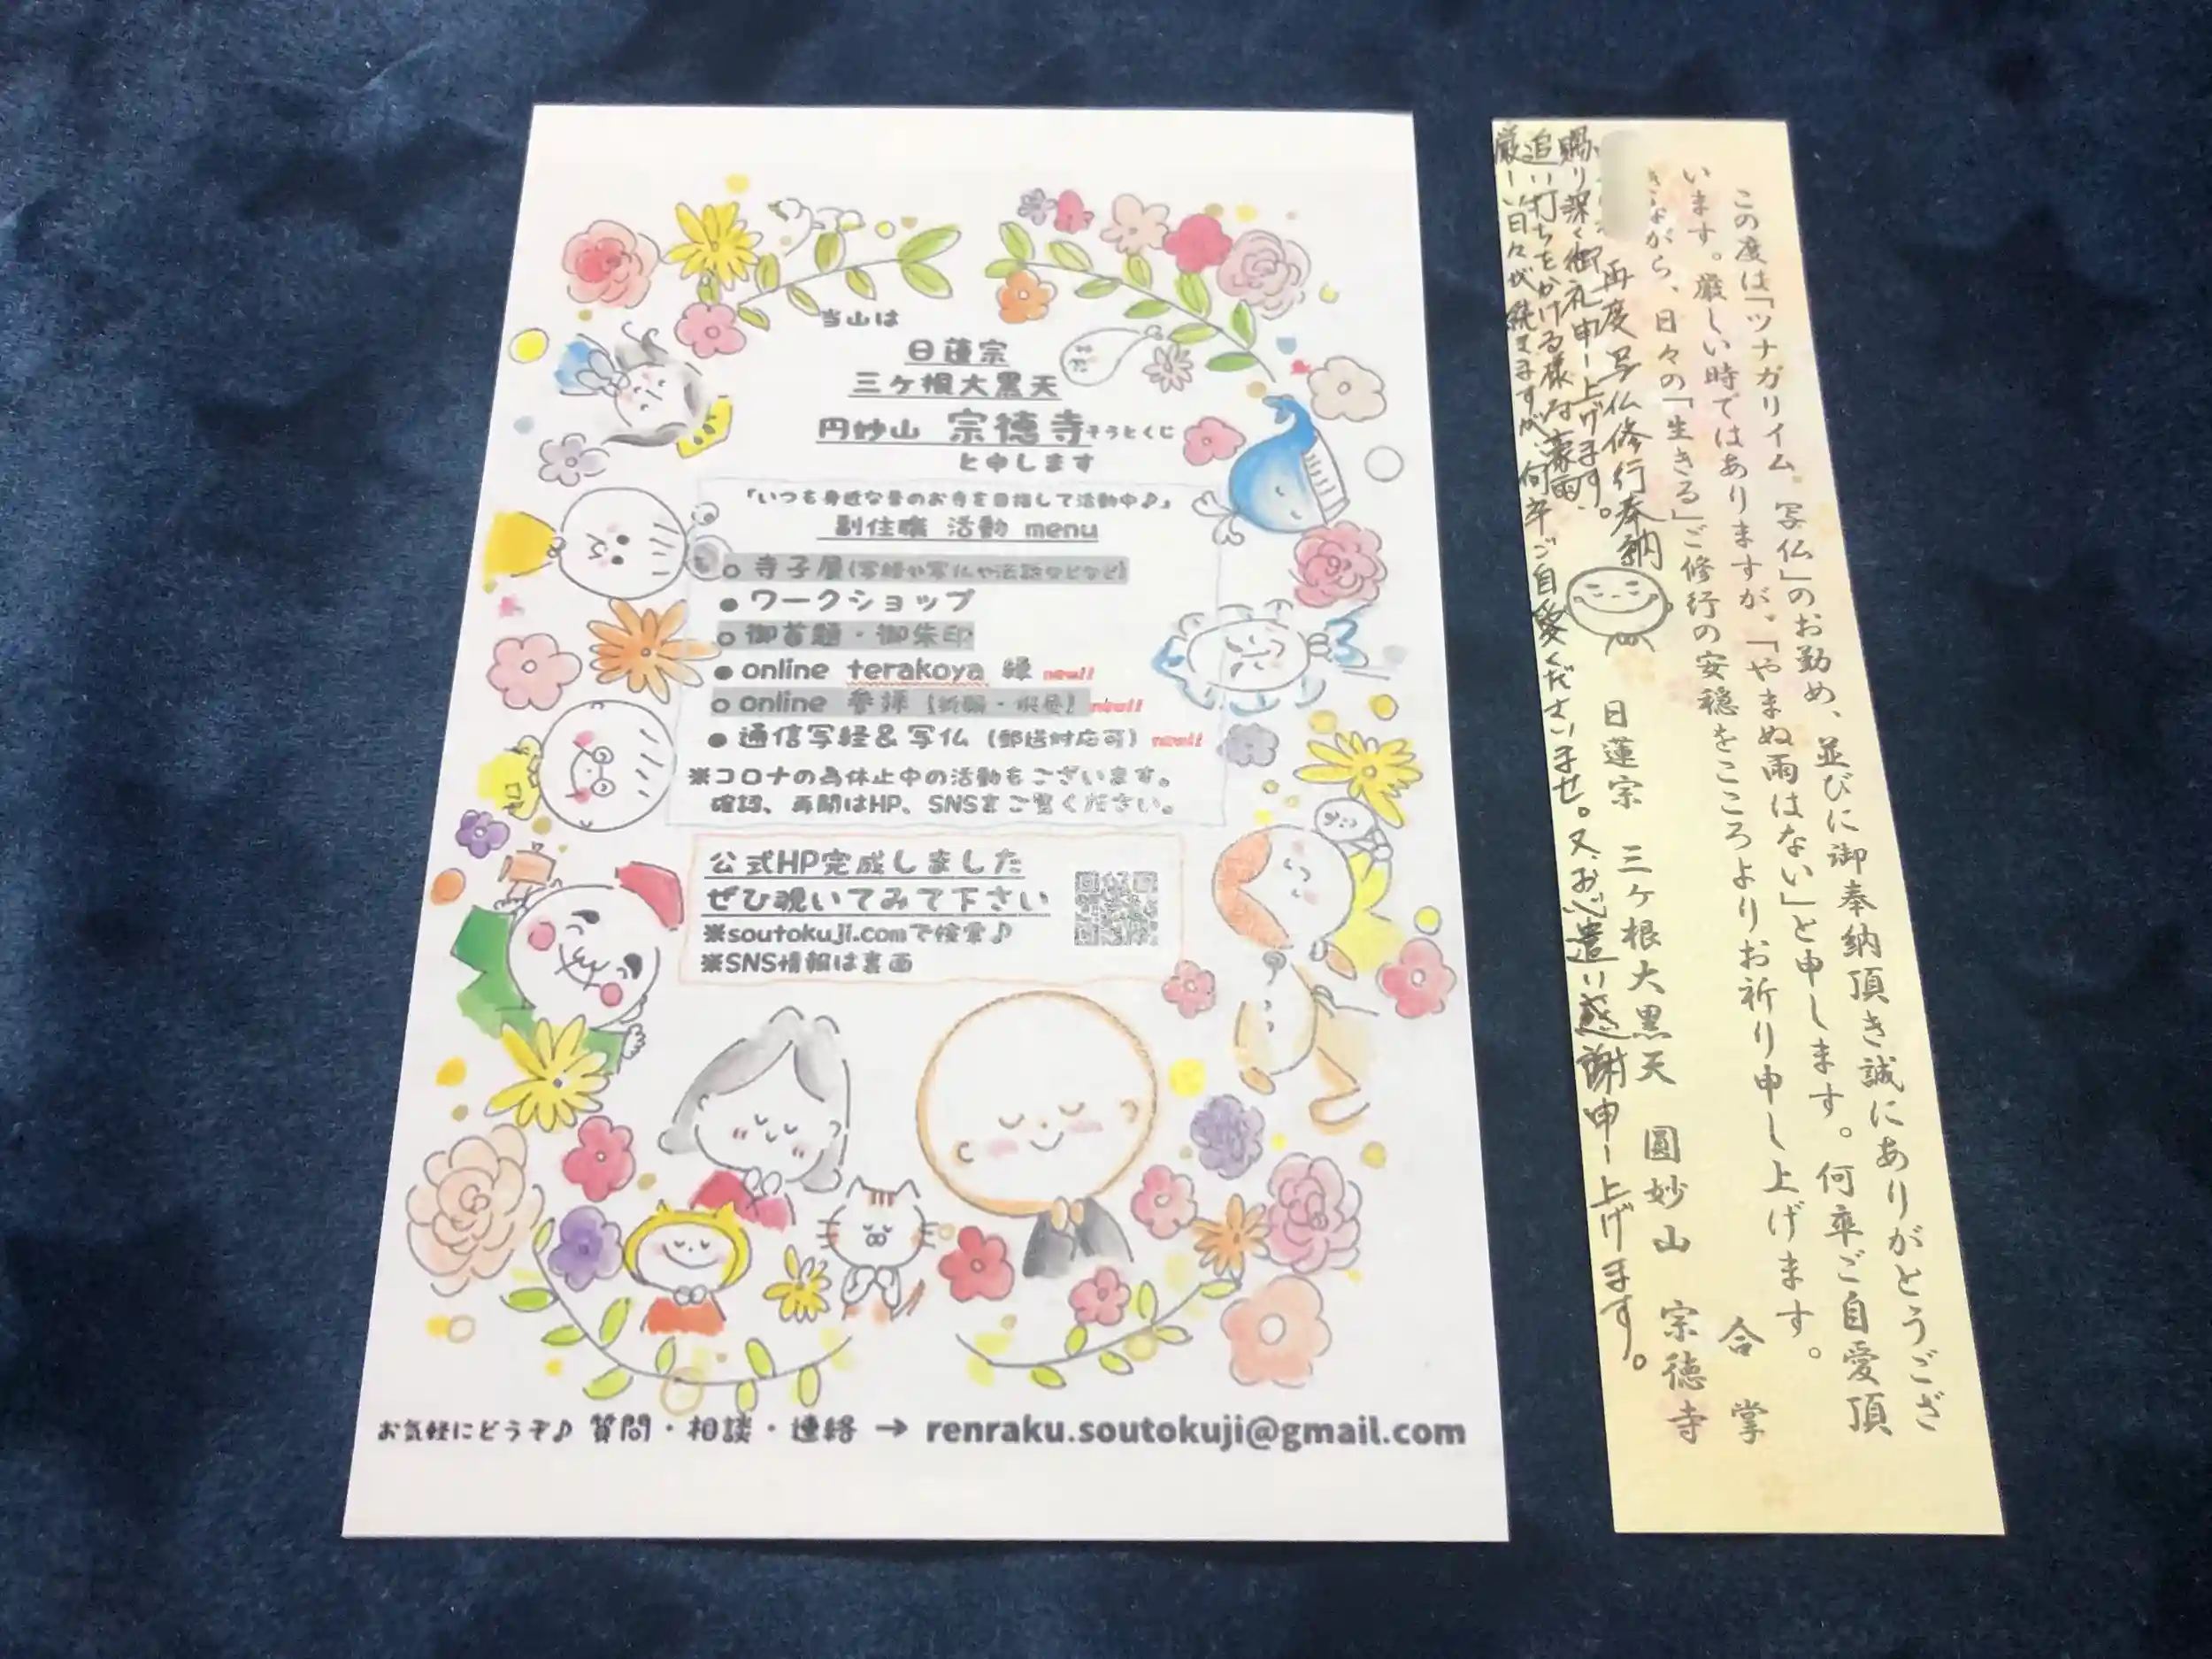 当山は
日蓮宗
三ヶ根大黒天
円妙山 宗徳寺そうとくじ
と申します
「いつも身近な星のお寺を目指して活動中♪」
副住職 活動 menu
○ 寺子屋(写経や写仏や法話などなど)
● ワークショップ
○ 御首題・御朱印
● online terakoya 縁 new!!
○ online 参拝【祈願・供養】 new!!
● 通信写経&写仏（郵送対応可） new!!
※コロナの為休止中の活動もございます。
確認、再開はHP、SNSをご覧ください。
公式HP完成しました
ぜひ覗いてみて下さい
※soutokuji.comで検索♪
※SNS情報は裏面
お気軽にどうぞ♪ 質問・相談・連絡 → renraku.soutokuji@gmail.com
この度は「ツナガリイム。写仏」のお勤め、並びに御奉納頂き誠にありがとうござ
います。厳しい時ではありますが、「やまぬ雨はない」と申します。何卒ご自愛頂
きながら、日々の「生きる」ご修行の安穏をこころよりお祈り申し上げます。
合掌
日蓮宗 三ヶ根大黒天 圓妙山 宗徳寺
再度写仏修行奉納
賜り深く御礼申し上げます。
追い打ちをかける様な豪雨、
厳しい日々が続きますが、何卒ご自愛くださいませ。又、お心遣い感謝申し上げます。